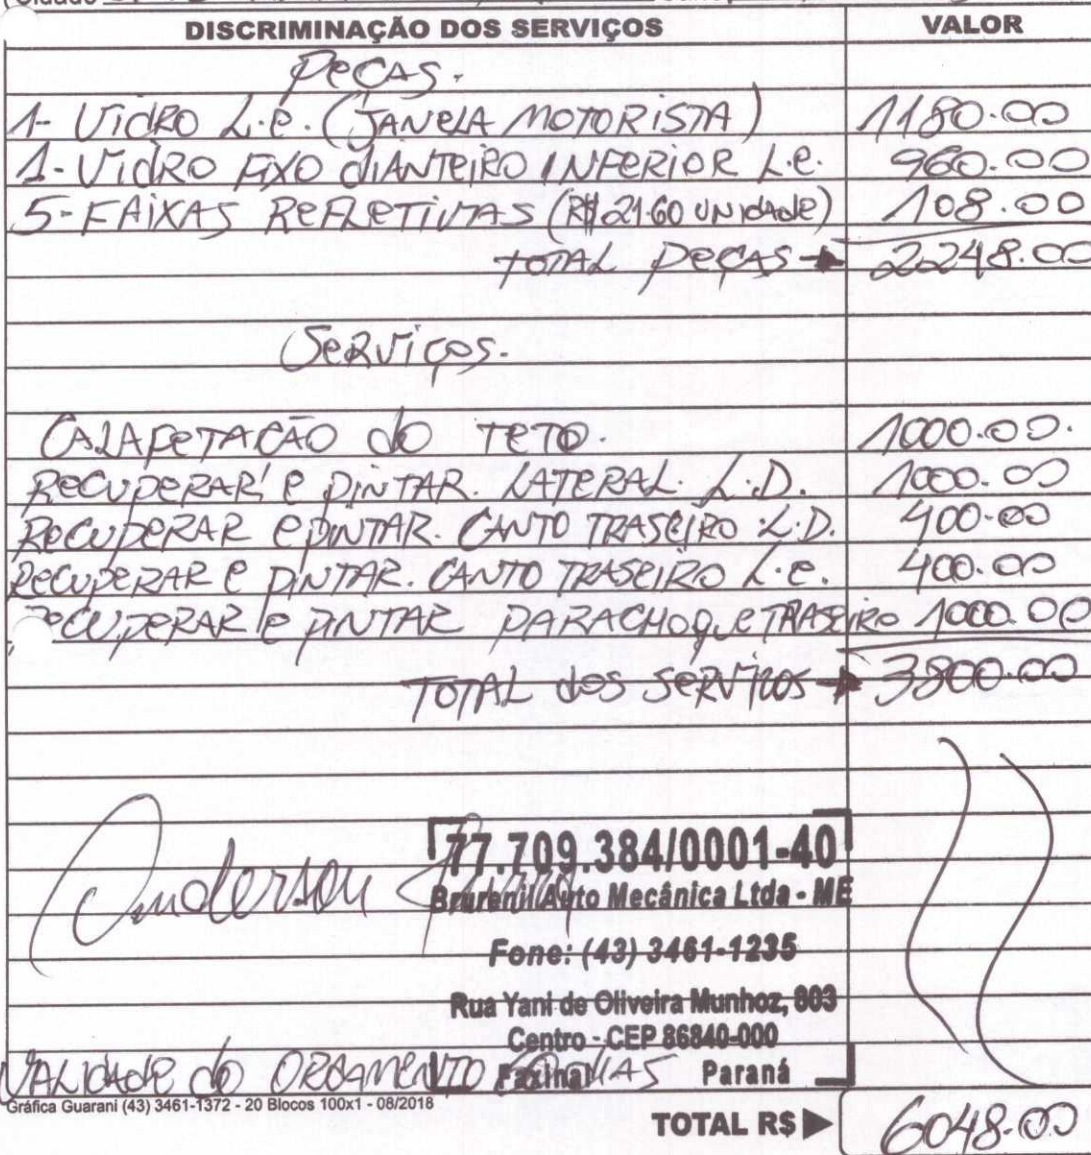 Cidade
DISCRIMINAÇÃO DOS SERVIÇOS VALOR
PEÇAS.
1- VIDRO L.E. (JANELA MOTORISTA) 1180.00
1- VIDRO FIXO DIANTEIRO INFERIOR L.E. 960.00
5- FAIXAS REFLETIVAS (R$ 21.60 UNIDADE) 108.00
TOTAL PEÇAS → 2248.00
SERVIÇOS.
CALAFETAÇÃO DO TETO. 1000.00.
RECUPERAR E PINTAR. LATERAL. L.D. 1000.00
RECUPERAR E PINTAR. CANTO TRASEIRO L.D. 400.00
RECUPERAR E PINTAR. CANTO TRASEIRO L.E. 400.00
RECUPERAR E PINTAR PARACHOQUE TRASEIRO 1000.00
TOTAL DOS SERVIÇOS → 3800.00
Anderson
77.709.384/0001-40
Brurenil Auto Mecânica Ltda - ME
Fone: (43) 3461-1235
Rua Yani de Oliveira Munhoz, 803
Centro - CEP 86840-000
Faxinal Paraná
VALIDADE DO ORÇAMENTO DIAS
Gráfica Guarani (43) 3461-1372 - 20 Blocos 100x1 - 08/2018
TOTAL R$ ▶ 6048.00